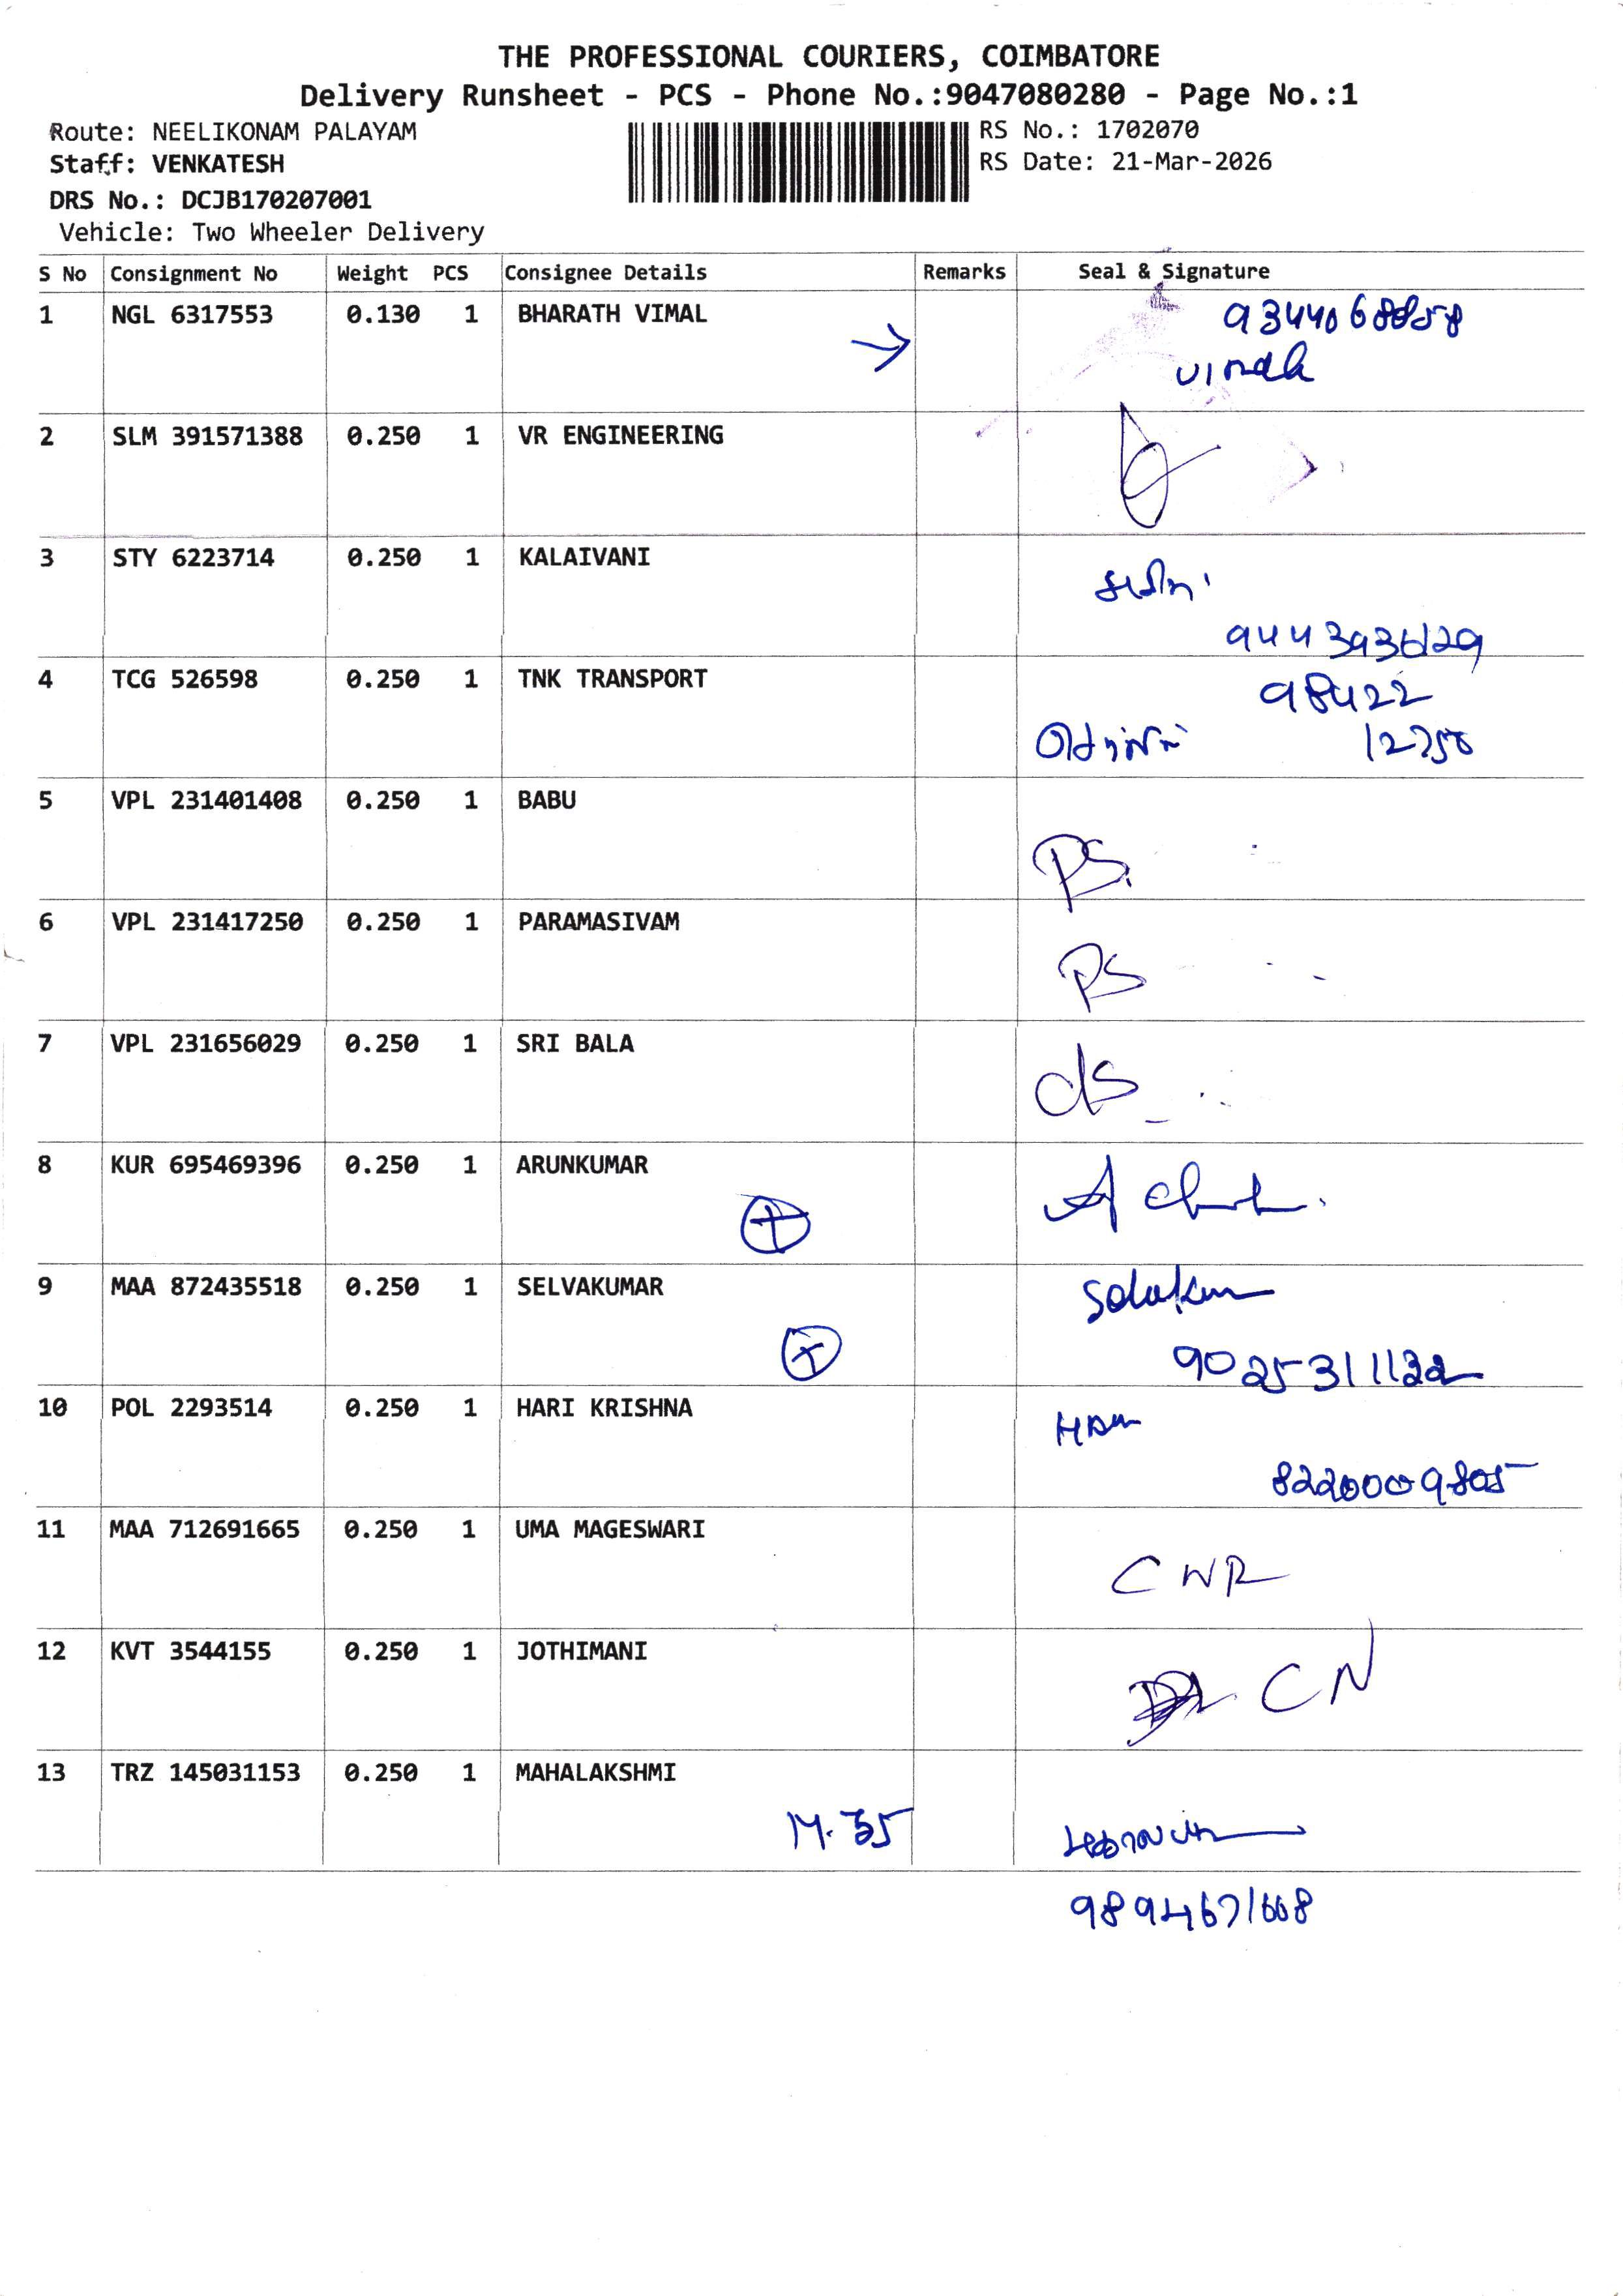 THE PROFESSIONAL COURIERS, COIMBATORE
Delivery Runsheet - PCS - Phone No.:9047080280 - Page No.:1
Route: NEELIKONAM PALAYAM
RS No.: 1702070
Staff: VENKATESH
RS Date: 21-Mar-2026
DRS No.: DCJB170207001
Vehicle: Two Wheeler Delivery
S No Consignment No Weight PCS Consignee Details Remarks Seal & Signature
1 NGL 6317553 0.130 1 BHARATH VIMAL
2 SLM 391571388 0.250 1 VR ENGINEERING
3 STY 6223714 0.250 1 KALAIVANI
4 TCG 526598 0.250 1 TNK TRANSPORT
98422
5 VPL 231401408 0.250 1 BABU
PS.
6 VPL 231417250 0.250 1 PARAMASIVAM
PS
7 VPL 231656029 0.250 1 SRI BALA
8 KUR 695469396 0.250 1 ARUNKUMAR
9 MAA 872435518 0.250 1 SELVAKUMAR
9025311132
10 POL 2293514 0.250 1 HARI KRISHNA
11 MAA 712691665 0.250 1 UMA MAGESWARI
CWR
12 KVT 3544155 0.250 1 JOTHIMANI
CN
13 TRZ 145031153 0.250 1 MAHALAKSHMI
9894671668